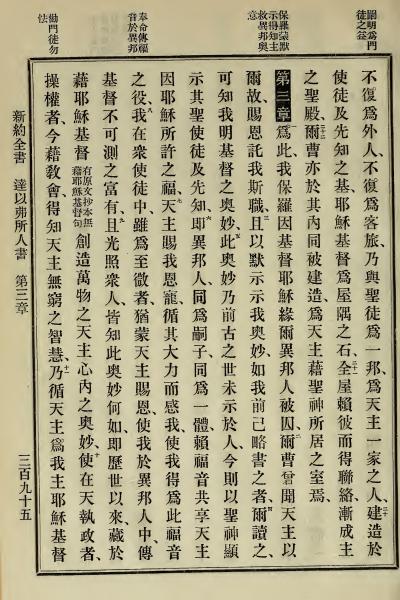 闡明為門
徒之益
保羅蒙默
示得知主
救異邦奧
意
奉命傳福
音於異邦
勸門徒勿
怯
不復爲外人、不復爲客旅、乃與聖徒爲一邦、爲天主一家之人、二十建造於
使徒及先知之基、耶穌基督爲屋隅之石、二十一全屋賴彼而得聯絡、漸成主
之聖殿、二十二爾曹亦於其內同被建造、爲天主藉聖神所居之室焉、
第三章 爲此我保羅因基督耶穌緣爾異邦人被囚、二爾曹曾聞天主以
爾故、賜恩託我斯職、三且以默示示我奧妙、如我前已略書之者、四爾讀之、
可知我明基督之奧妙、五此奧妙乃前古之世未示於人、今則以聖神顯
示其聖使徒及先知、六即異邦人、同爲嗣子、同爲一體、賴福音共享天主
因耶穌所許之福、七天主賜我恩寵、循其大力而感我、使我得爲此福音
之役、八我在衆使徒中、雖爲至微者、猶蒙天主賜恩、使我於異邦人中、傳
基督不可測之富有、九且光照衆人、皆知此奧妙何如、即歷世以來、藏於
藉耶穌基督有原文抄本無藉耶穌基督句創造萬物之天主心內之奧妙、十使在天執政者、
操權者、今藉敎會、得知天主無窮之智慧、十一乃循天主爲我主耶穌基督
新約全書 達以弗所人書 第三章 三百九十五